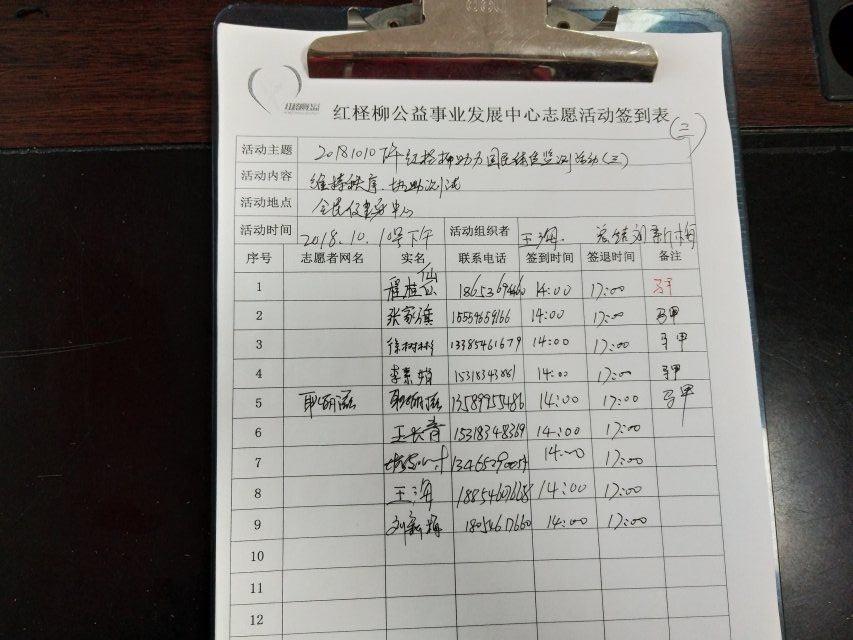 红柽柳公益事业发展中心志愿活动签到表
(三)
活动主题 20181010下午红柽柳助力国民体质监测活动(三)
活动内容 维持秩序、协助测试
活动地点 全民健身中心
活动时间 2018.10.10号下午 活动组织者 王海 总结刘新梅
序号 志愿者网名 实名 联系电话 签到时间 签退时间 备注
1 程桂仙 14:00 17:00
2 张家旗 15554659166 14:00 17:00 马甲
3 徐树彬 13385461679 14:00 17:00 马甲
4 李素娟 15318343881 14:00 17:00 马甲
5 13589955486 14:00 17:00 马甲
6 王长青 15318348369 14:00 17:00
7 14:00 17:00
8 王海 18854607668 14:00 17:00
9 刘新梅 18054617660 14:00 17:00
10
11
12